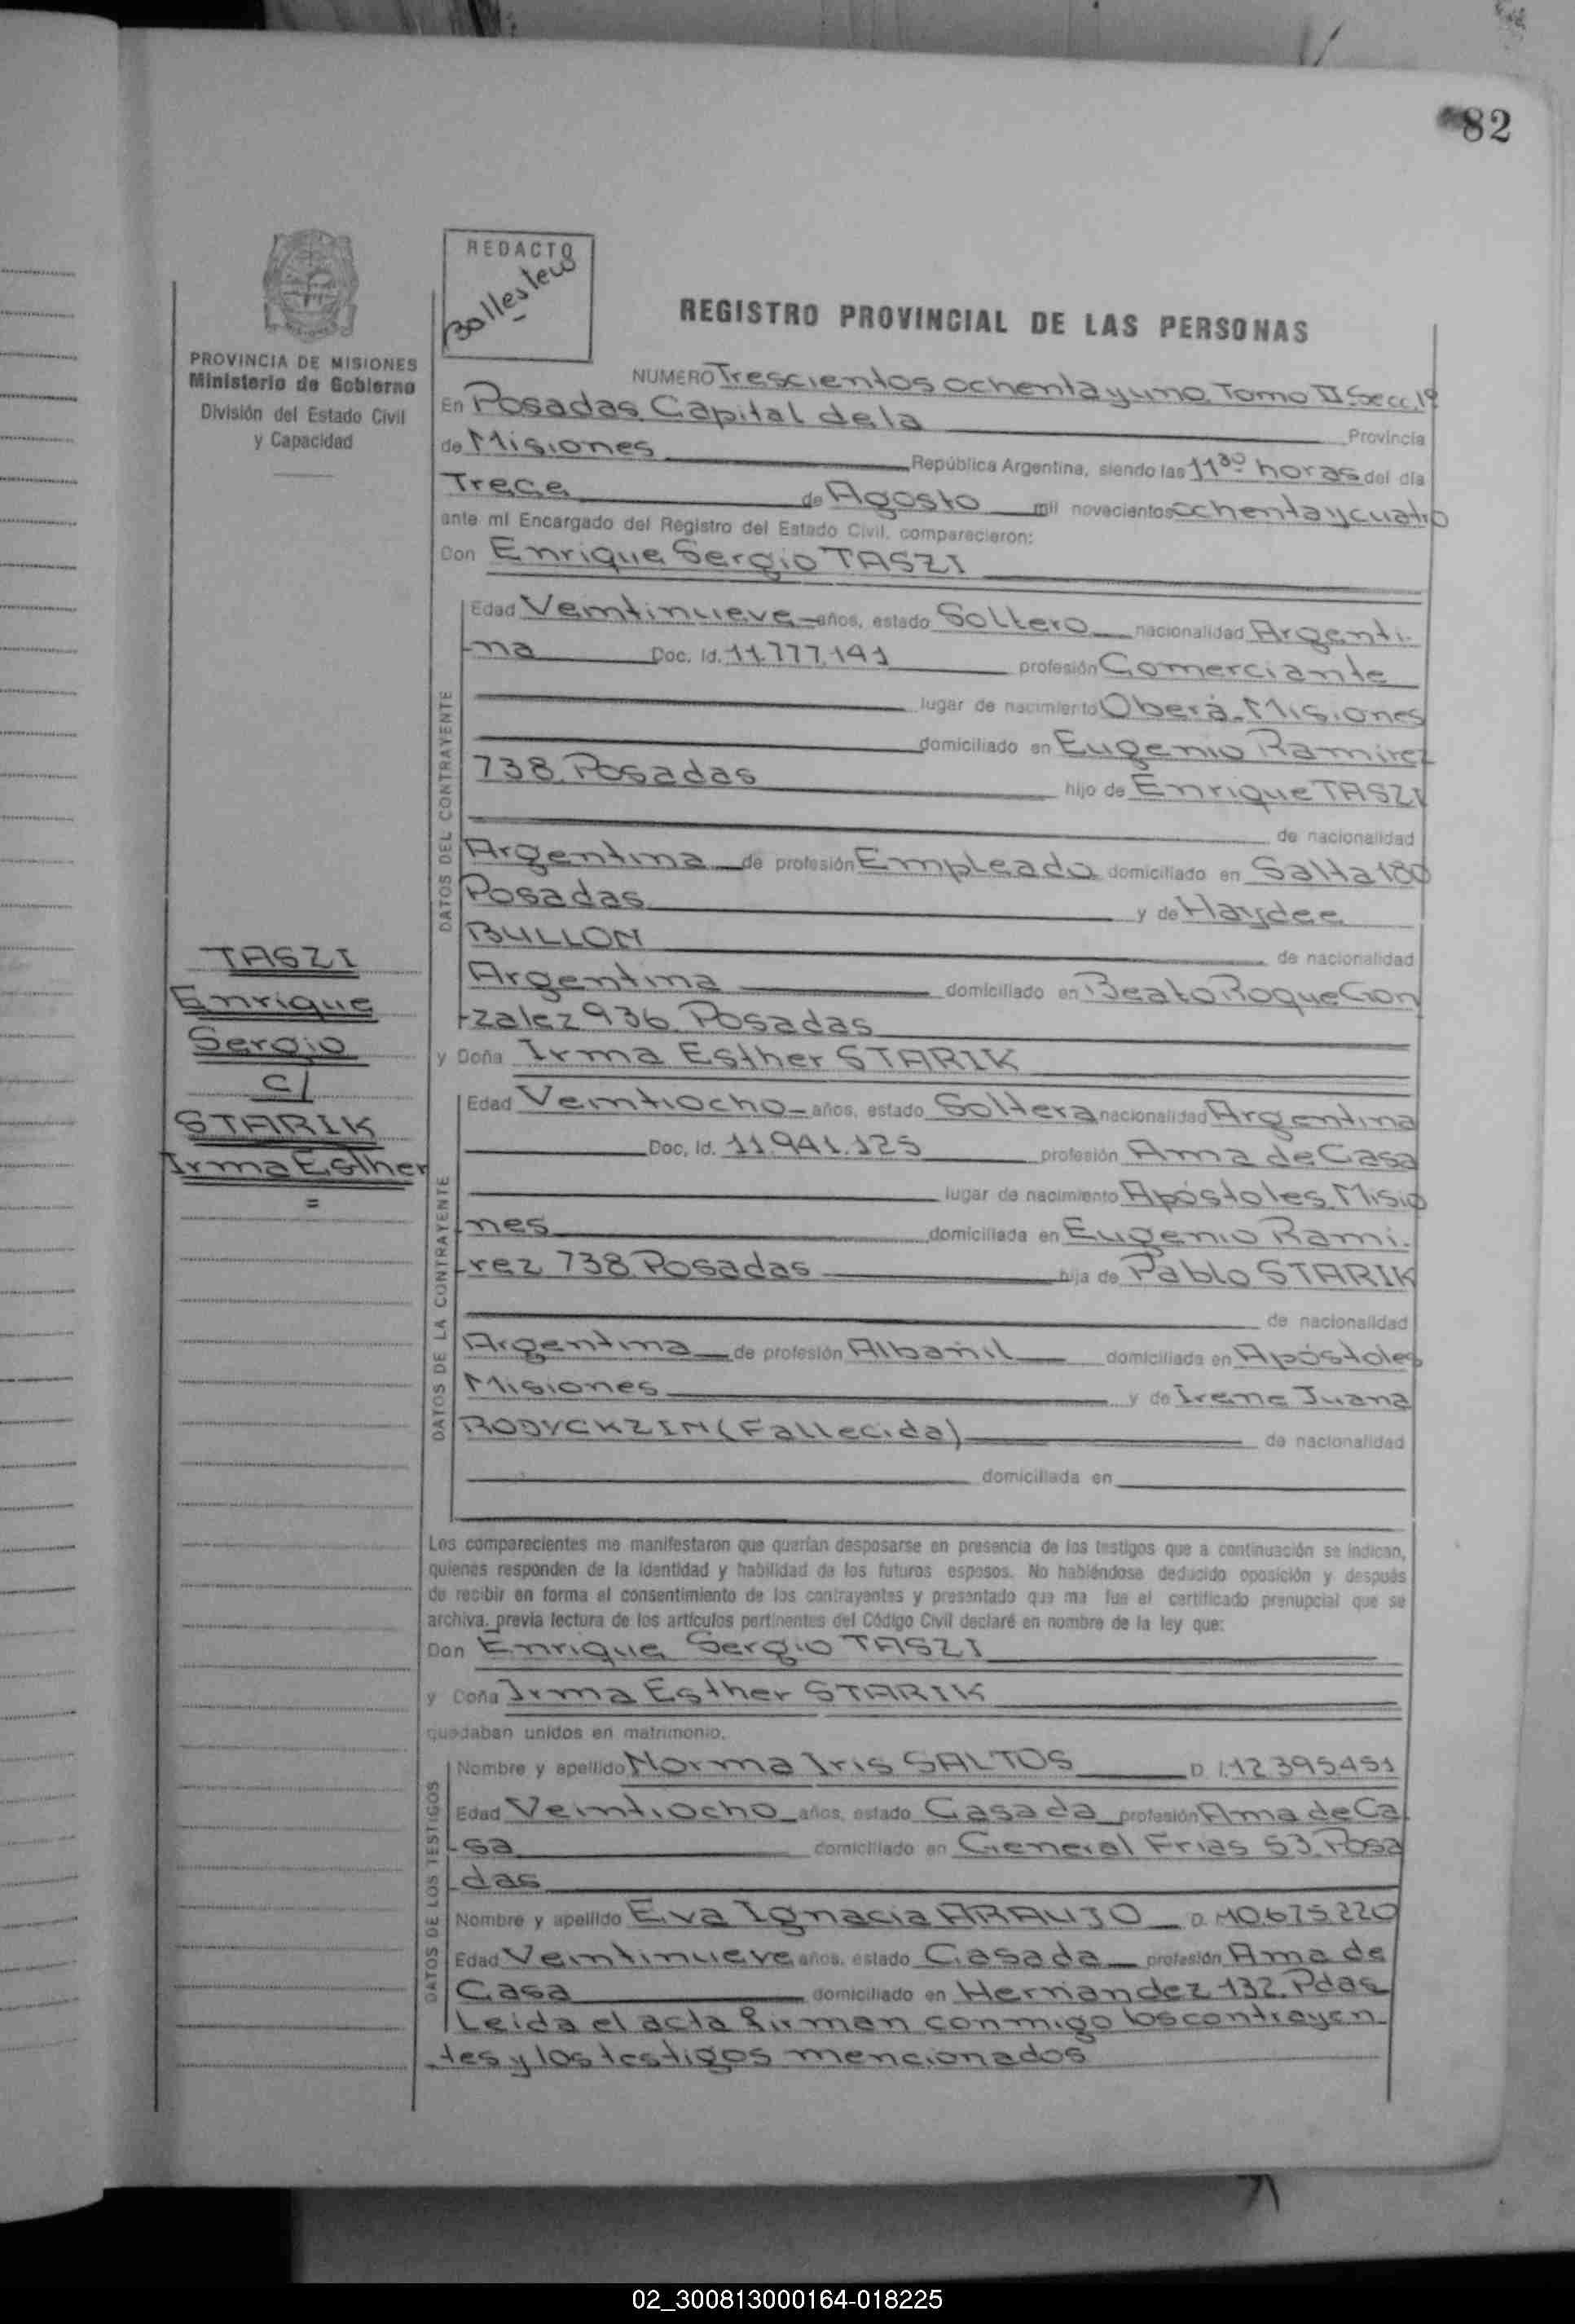 82
REDACTO
Ballestero
REGISTRO PROVINCIAL DE LAS PERSONAS
PROVINCIA DE MISIONES
Ministerio de Gobierno
División del Estado Civil
y Capacidad
NUMERO Trescientos ochenta y uno Tomo II Secc. 1º
En Posadas Capital de la Provincia
de Misiones República Argentina, siendo las 11 30 horas del día
Trece de Agosto mil novecientos ochenta y cuatro
ante mi Encargado del Registro del Estado Civil, comparecieron:
Don Enrique Sergio TASZI
DATOS DEL CONTRAYENTE
Edad Veintinueve años, estado Soltero nacionalidad Argenti-
-na Doc. Id. 11.777.141 profesión Comerciante
lugar de nacimiento Oberá-Misiones
domiciliado en Eugenio Ramirez
738. Posadas hijo de Enrique TASZI
de nacionalidad
Argentina de profesión Empleado domiciliado en Salta 180
Posadas y de Haydee
BULLON de nacionalidad
Argentina domiciliado en Beato Roque Gon
-zalez 936. Posadas
TASZI
Enrique
Sergio
c/
STARIK
Irma Esther
=
y Doña Irma Esther STARIK
DATOS DE LA CONTRAYENTE
Edad Veintiocho años, estado Soltera nacionalidad Argentina
Doc. Id. 11.941.125 profesión Ama de Casa
lugar de nacimiento Apóstoles Misio
-nes domiciliada en Eugenio Rami-
-rez 738. Posadas hija de Pablo STARIK
de nacionalidad
Argentina de profesión Albañil domiciliada en Apóstoles
Misiones y de Irene Juana
RODYCKZIN (Fallecida) de nacionalidad
domiciliada en
Los comparecientes me manifestaron que querían desposarse en presencia de los testigos que a continuación se indican,
quienes responden de la identidad y habilidad de los futuros esposos. No habiéndose deducido oposición y después
de recibir en forma el consentimiento de los contrayentes y presentado que me fue el certificado prenupcial que se
archiva, previa lectura de los artículos pertinentes del Código Civil declaré en nombre de la ley que:
Don Enrique Sergio TASZI
y Doña Irma Esther STARIK
quedaban unidos en matrimonio.
DATOS DE LOS TESTIGOS
Nombre y apellido Norma Iris SALTOS D. I. 12 395451
Edad Veintiocho años, estado Casada profesión Ama de Ca-
-sa domiciliado en General Frias 53. Posa
-das
Nombre y apellido Eva Ignacia ARAUJO D. I 10.675.220
Edad Veintinueve años, estado Casada profesión Ama de
Casa domiciliado en Hernandez 132. Pdas
Leida el acta firman conmigo los contrayen-
-tes y los testigos mencionados
02_300813000164-018225